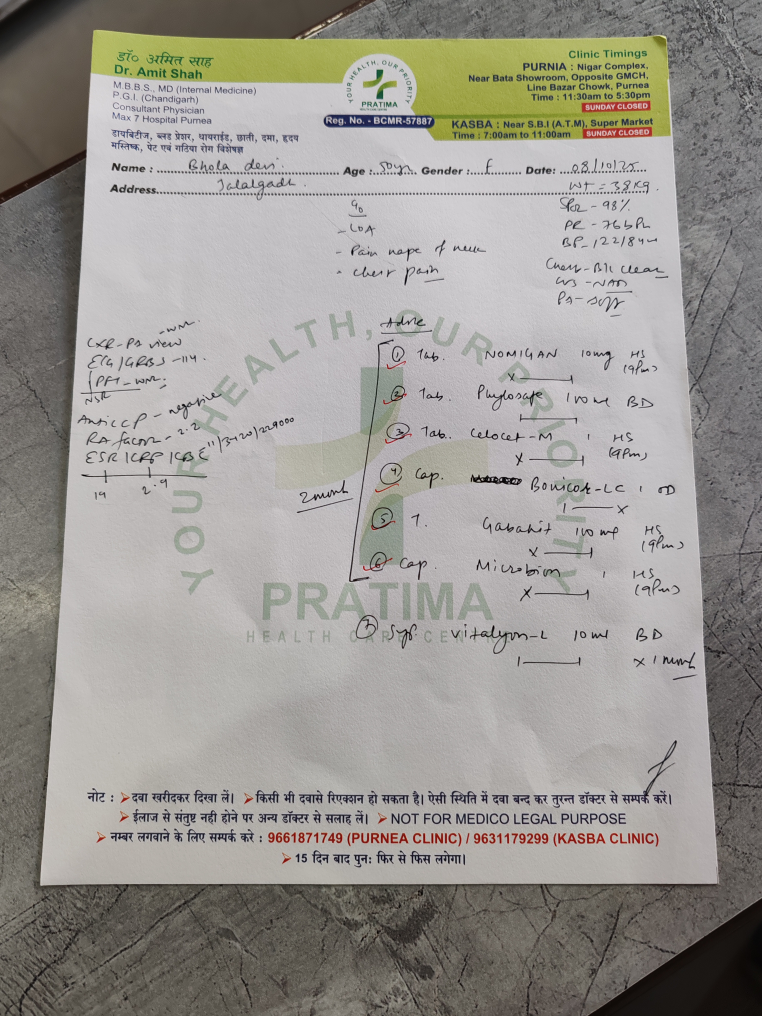 डॉ० अमित साह
Dr. Amit Shah
M.B.B.S., MD (Internal Medicine)
P.G.I. (Chandigarh)
Consultant Physician
Max 7 Hospital Purnea
डायबिटीज, ब्लड प्रेशर, थायराईड, छाती, दमा, हृदय
मस्तिष्क, पेट एवं गठिया रोग विशेषज्ञ
YOUR HEALTH, OUR PRIORITY
PRATIMA
HEALTH CARE CENTRE
Reg. No. - BCMR-57887
Clinic Timings
PURNIA : Nigar Complex,
Near Bata Showroom, Opposite GMCH,
Line Bazar Chowk, Purnea
Time : 11:30am to 5:30pm
SUNDAY CLOSED
KASBA : Near S.B.I (A.T.M), Super Market
Time : 7:00am to 11:00am SUNDAY CLOSED
Name : Bhola devi Age : 50yr Gender : F Date: 08/10/25
Address Jalalgadh Wt = 38kg
SPO2 - 98%
PR - 76 bpm
BP - 122/84
Chest - B/L clear
- NAD
PA - soft
- Pain nape of neck
- chest pain
CXR-PA view
ECG/GRBS - 114
PFT -
NSR
Anti CCP - negative
RA factor - 2.2
ESR/CRP/CBC
19 2.9
Advice
2 month
① Tab. NOMIGAN 10mg HS (9Pm)
x
② Tab. Phylosafe 100ml BD
③ Tab. Celocet-M 1 HS (9Pm)
x
④ Cap. Bonicat-LC 1 OD
x
⑤ T. Gabahit 100mg HS (9Pm)
x
⑥ Cap. Microbion 1 HS (9Pm)
x
⑦ Syp. Vitalyon-L 10ml BD
x 1 month
YOUR HEALTH, OUR PRIORITY
PRATIMA
HEALTH CARE CENTRE
नोट : ➤दवा खरीदकर दिखा लें। ➤किसी भी दवासे रिएक्शन हो सकता है। ऐसी स्थिति में दवा बन्द कर तुरन्त डॉक्टर से सम्पर्क करें।
➤ईलाज से संतुष्ट नही होने पर अन्य डॉक्टर से सलाह लें। ➤ NOT FOR MEDICO LEGAL PURPOSE
➤ नम्बर लगवाने के लिए सम्पर्क करे : 9661871749 (PURNEA CLINIC) / 9631179299 (KASBA CLINIC)
➤ 15 दिन बाद पुनः फिर से फिस लगेगा।